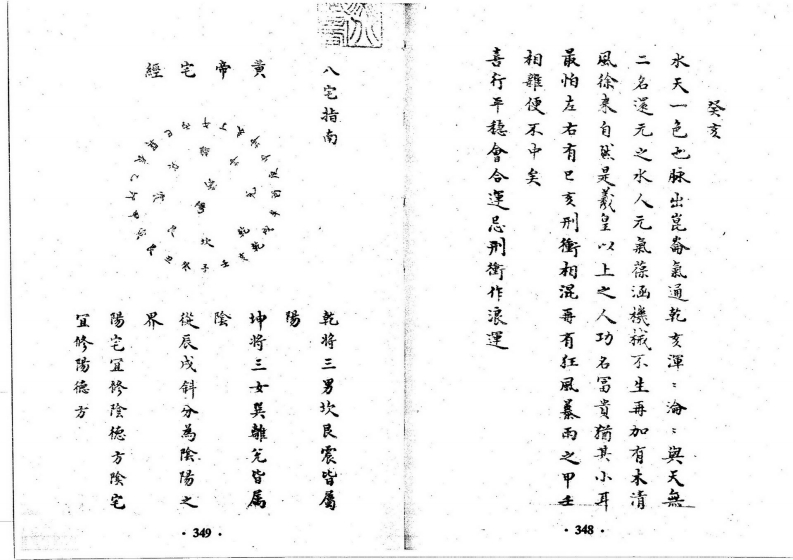 癸亥
水天一色也脉出崑崙氣通乾亥渾〻淪〻與天無
二名還元之水人元氣葆涵機械不生再加有木清
風徐來自然是羲皇以上之人功名富貴猶其小耳
最怕左右有巳亥刑衝相混再有狂風暴雨之甲壬
相雜便不中矣
喜行平穩會合運忌刑衝作浪運
· 348 ·
八宅指南
黃帝宅經
乾將三男坎艮震皆屬
陽
坤將三女巽離兌皆属
陰
從辰戌斜分為陰陽之
界
陽宅宜修陰德方陰宅
宜修陽德方
· 349 ·